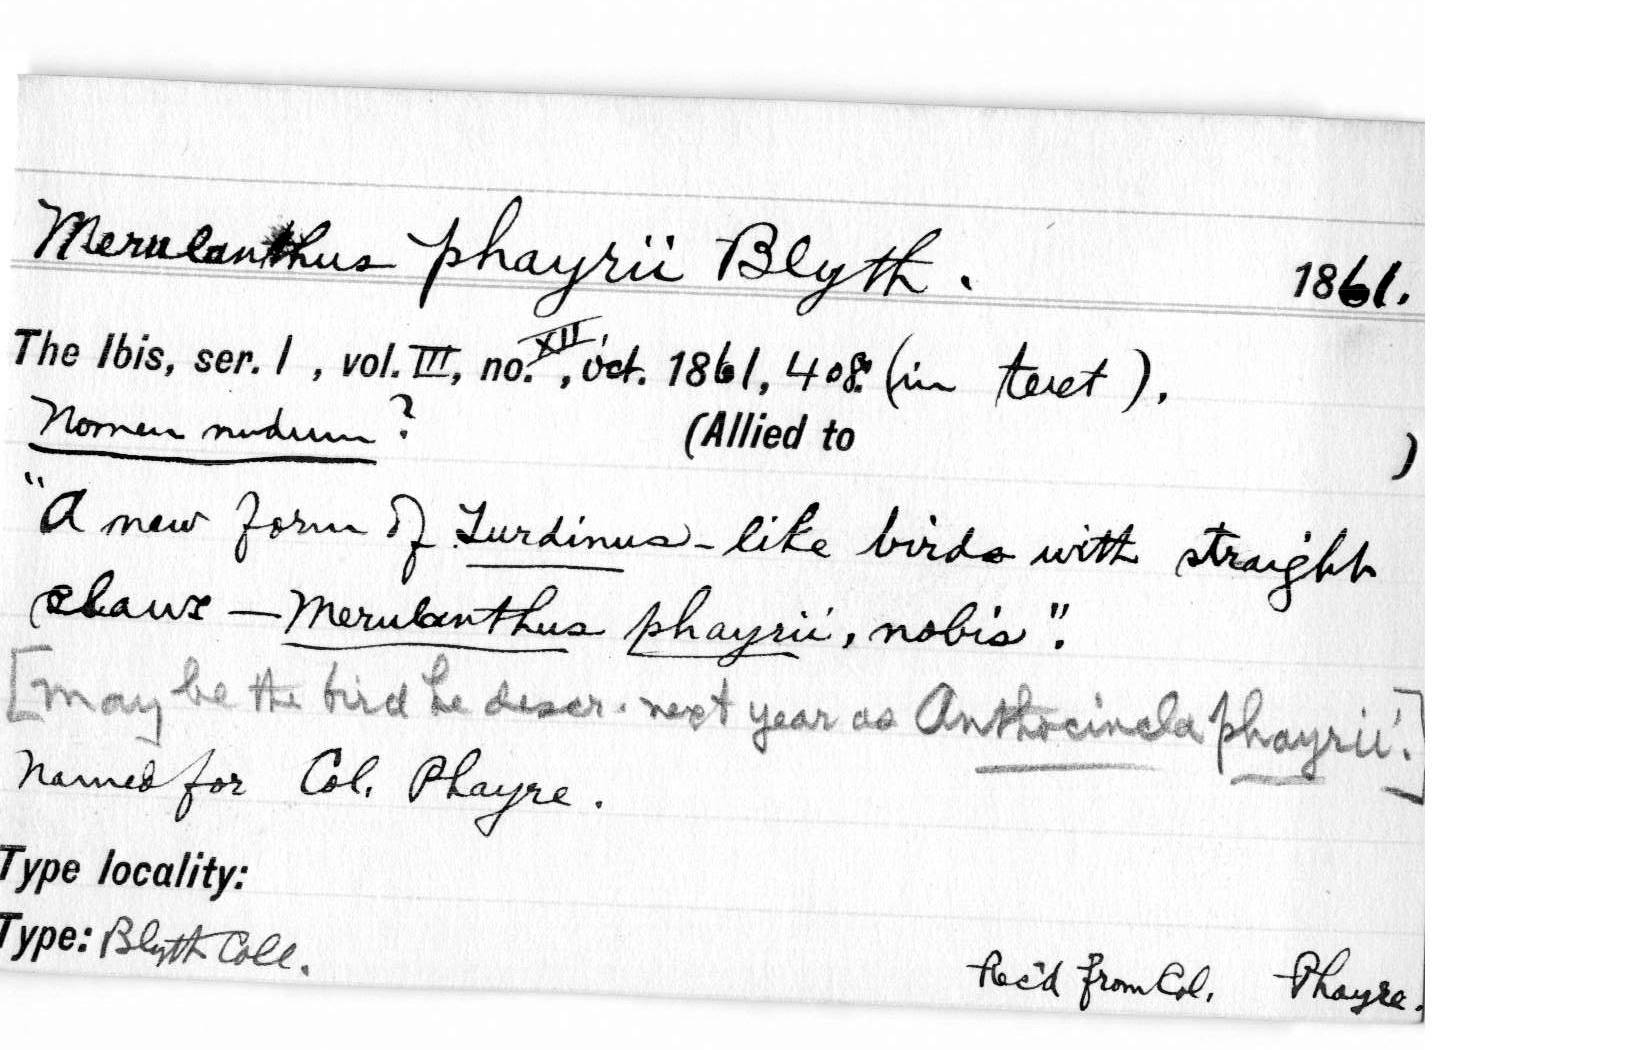 Merulanthus phayrii Blyth. 1861.
The Ibis, ser. 1, vol. III, no. XII, Oct. 1861, 408. (in text).
Nomen nudum? (Allied to )
"A new form of Turdinus-like birds with straight
claws — Merulanthus phayrii, nobis".
[May be the bird he descr. next year as Anthocincla phayrii.]
Named for Col. Phayre.
Type locality:
Type: Blyth Coll.
Rec'd from Col. Phayre.